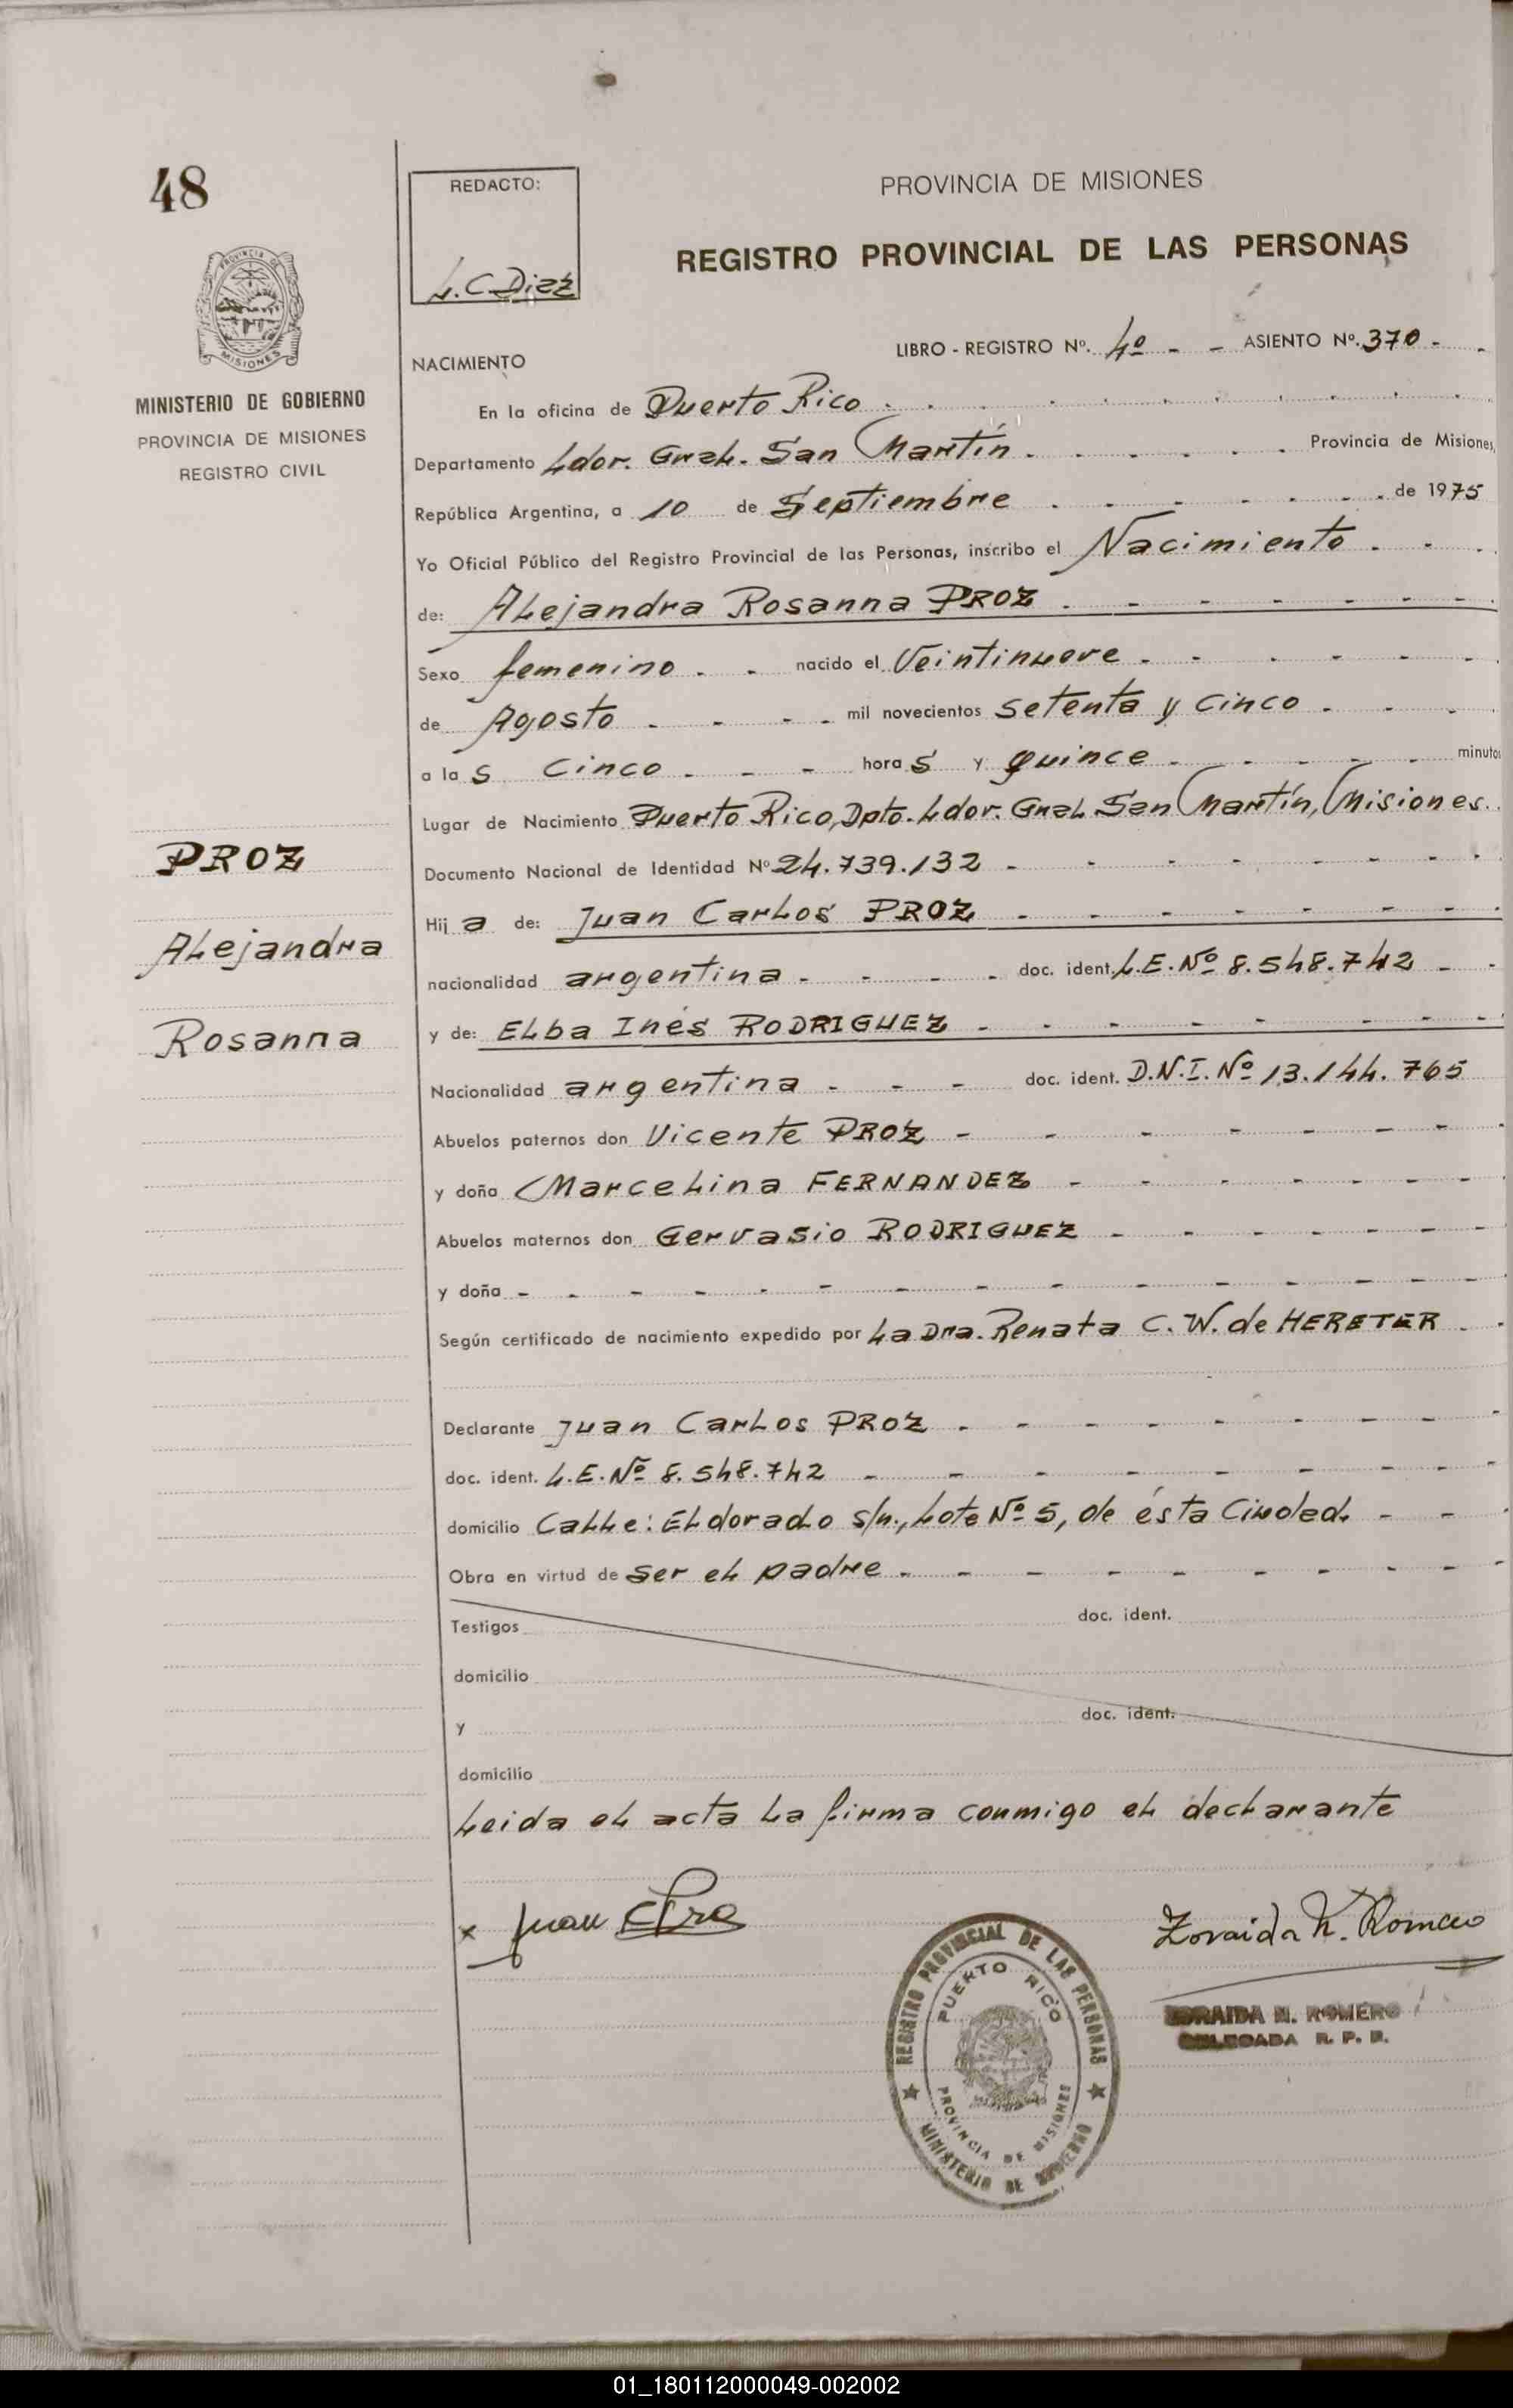 48
REDACTO:
L.C. Diez
PROVINCIA DE MISIONES
REGISTRO PROVINCIAL DE LAS PERSONAS
PROVINCIA DE
MISIONES
MINISTERIO DE GOBIERNO
PROVINCIA DE MISIONES
REGISTRO CIVIL
LIBRO - REGISTRO Nº. 4º - - ASIENTO Nº. 370 - -
NACIMIENTO
En la oficina de Puerto Rico
Departamento Ldor. Gral. San Martín Provincia de Misiones,
República Argentina, a 10 de Septiembre de 1975
Yo Oficial Público del Registro Provincial de las Personas, inscribo el Nacimiento
de: Alejandra Rosanna PROZ
Sexo femenino nacido el Veintinueve
de Agosto mil novecientos setenta y cinco
a la s cinco hora s y quince minutos
Lugar de Nacimiento Puerto Rico, Dpto. Ldor. Gral. San Martín, Misiones.
Documento Nacional de Identidad Nº 24.739.132
Hij a de: Juan Carlos PROZ
nacionalidad argentina doc. ident. L.E. Nº 8.548.742
y de: Elba Inés RODRIGUEZ
Nacionalidad argentina doc. ident. D.N.I. Nº 13.144.765
Abuelos paternos don Vicente PROZ
y doña Marcelina FERNANDEZ
Abuelos maternos don Gervasio RODRIGUEZ
y doña
Según certificado de nacimiento expedido por La Dra. Renata C. W. de HERETER
Declarante Juan Carlos PROZ
doc. ident. L.E. Nº 8.548.742
domicilio Calle: Eldorado s/n., Lote Nº 5, de ésta Ciudad.
Obra en virtud de ser el padre
Testigos doc. ident.
domicilio
y doc. ident.
domicilio
Leida el acta la firma conmigo el declarante
PROZ
Alejandra
Rosanna
x Juan C Proz
Zoraida N. Romero
ZORAIDA N. ROMERO
DELEGADA R. P. P.
REGISTRO PROVINCIAL DE LAS PERSONAS
PUERTO RICO
PROVINCIA DE MISIONES
MINISTERIO DE GOBIERNO
01_180112000049-002002